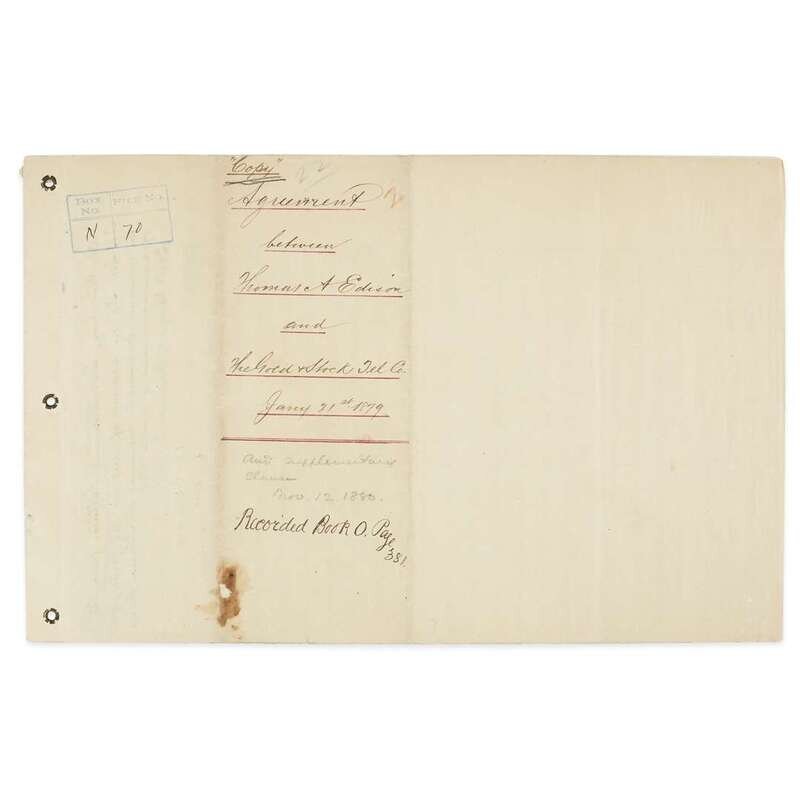 BOX No. FILE No.
N 70
"Copy"
Agreement
between
Thomas A Edison
and
The Gold & Stock Tel Co.
Jany 21st 1879
and supplementary
clause
Nov. 12. 1880.
Recorded Book O. Page
381.